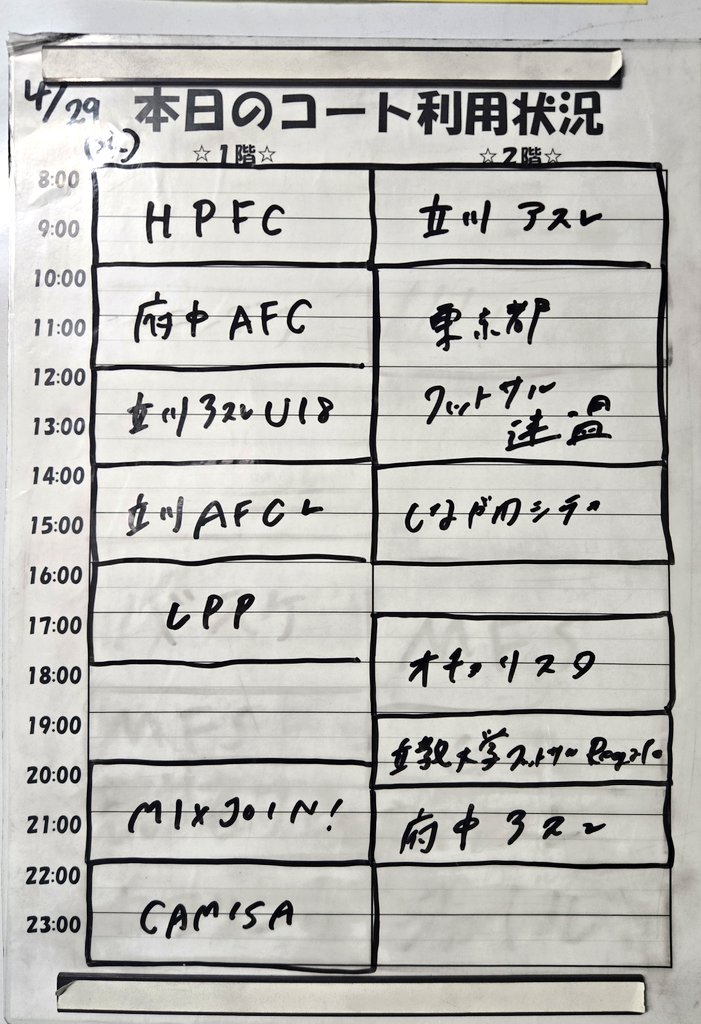 4/29
本日のコート利用状況
☆1階☆
☆2階☆
8:00
9:00
HPFC
立川アスレ
10:00
11:00
府中AFC
東京都
12:00
13:00
立川アスレU18
フットサル
連盟
14:00
15:00
立川AFCレ
しながわシティ
16:00
17:00
LPP
18:00
オチャリスタ
19:00
20:00
立教大学
21:00
MIXJOIN!
府中アスレ
22:00
23:00
CAMISA